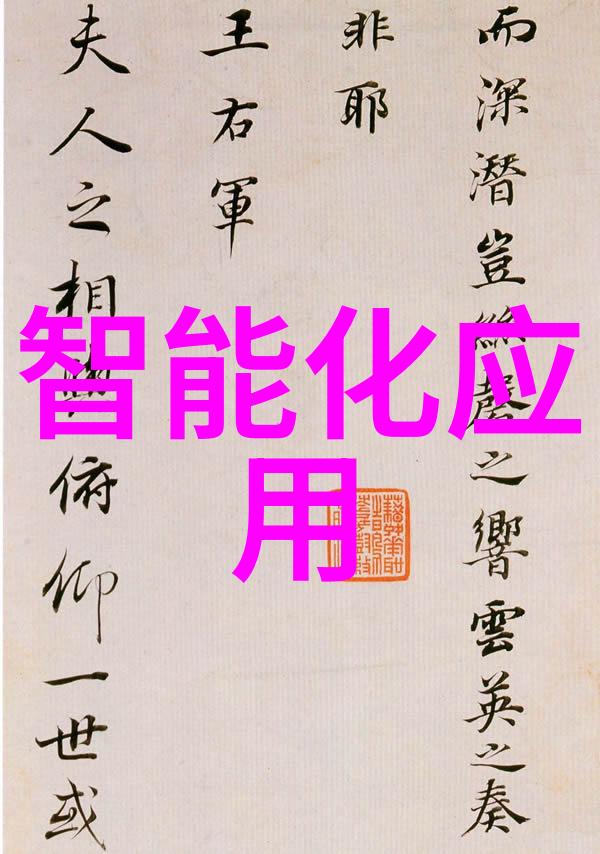 而深潛豈絲磬之響雲英之奏
非耶
王右軍
夫人之相與俯仰一世或
智能化应
用